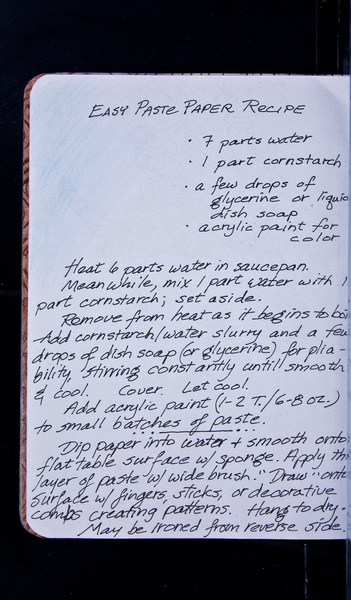 EASY PASTE PAPER RECIPE
· 7 parts water
· 1 part cornstarch
· a few drops of
glycerine or liquid
dish soap
· acrylic paint for
color
Heat 6 parts water in saucepan.
Meanwhile, mix 1 part water with 1
part cornstarch; set aside.
Remove from heat as it begins to boil
Add cornstarch/water slurry and a few
drops of dish soap (or glycerine) for plia-
bility, stirring constantly until smooth
& cool. Cover. Let cool.
Add acrylic paint (1-2 T./6-8 oz.)
to small batches of paste.
Dip paper into water + smooth onto
flat table surface w/ sponge. Apply thi
layer of paste w/ wide brush. "Draw" onto
surface w/ fingers, sticks, or decorative
combs creating patterns. Hang to dry.
May be ironed from reverse side.